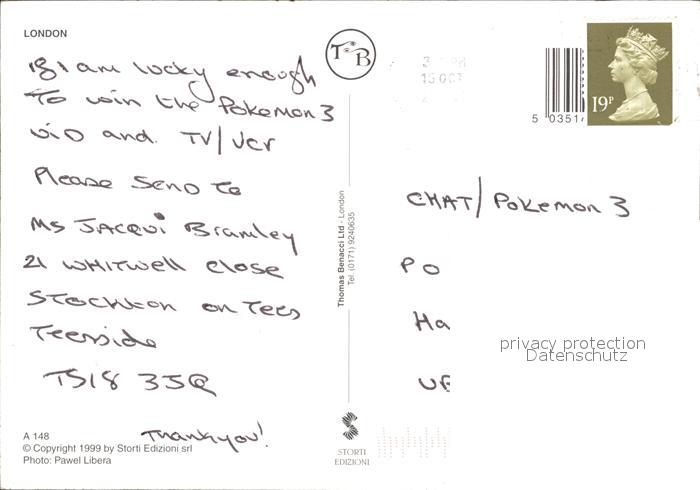 LONDON
If I am lucky enough
To win the Pokemon 3
vio and. TV/Vcr
Please Send to
Ms JACQUI Bramley
21 WHITWELL close
STOCKTON on Tees
Teesside
TS18 3JQ
Thankyou!
A 148
© Copyright 1999 by Storti Edizioni srl
Photo: Pawel Libera
T B
Thomas Benacci Ltd - London
Tel. (0171) 9240635
STORTI
EDIZIONI
15 OCT
5 0351
19P
CHAT/Pokemon 3
PO
Ha
privacy protection
Datenschutz